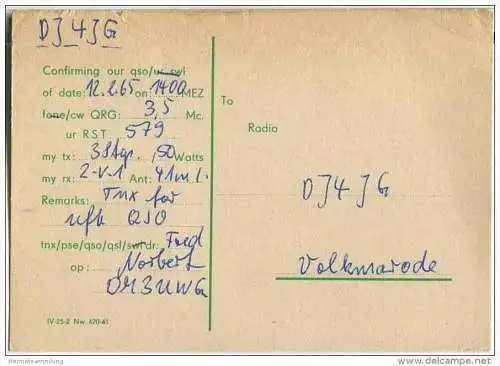 DJ4JG
Confirming our qso/ur swl
of date: 12.2.65 on: 1400 MEZ
fone/cw QRG: 3,5 Mc.
ur RST 579
my tx: 3 Stg. /50 Watts
my rx: 2-V-1 Ant: 41m L.
Remarks: Tnx for
ufb QSO
tnx/pse/qso/qsl/swl dr: Fred
op: Norbert
DM3UWG
IV-25-2 Nw. 420-61
To
Radio
DJ4JG
Volkmarode
Heimatsammlung
delcampe.net